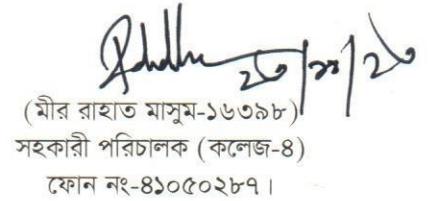 ২৩/১১/২৩
(মীর রাহাত মাসুম-১৬৩৯৮)
সহকারী পরিচালক (কলেজ-৪)
ফোন নং-৪১০৫০২৮৭।